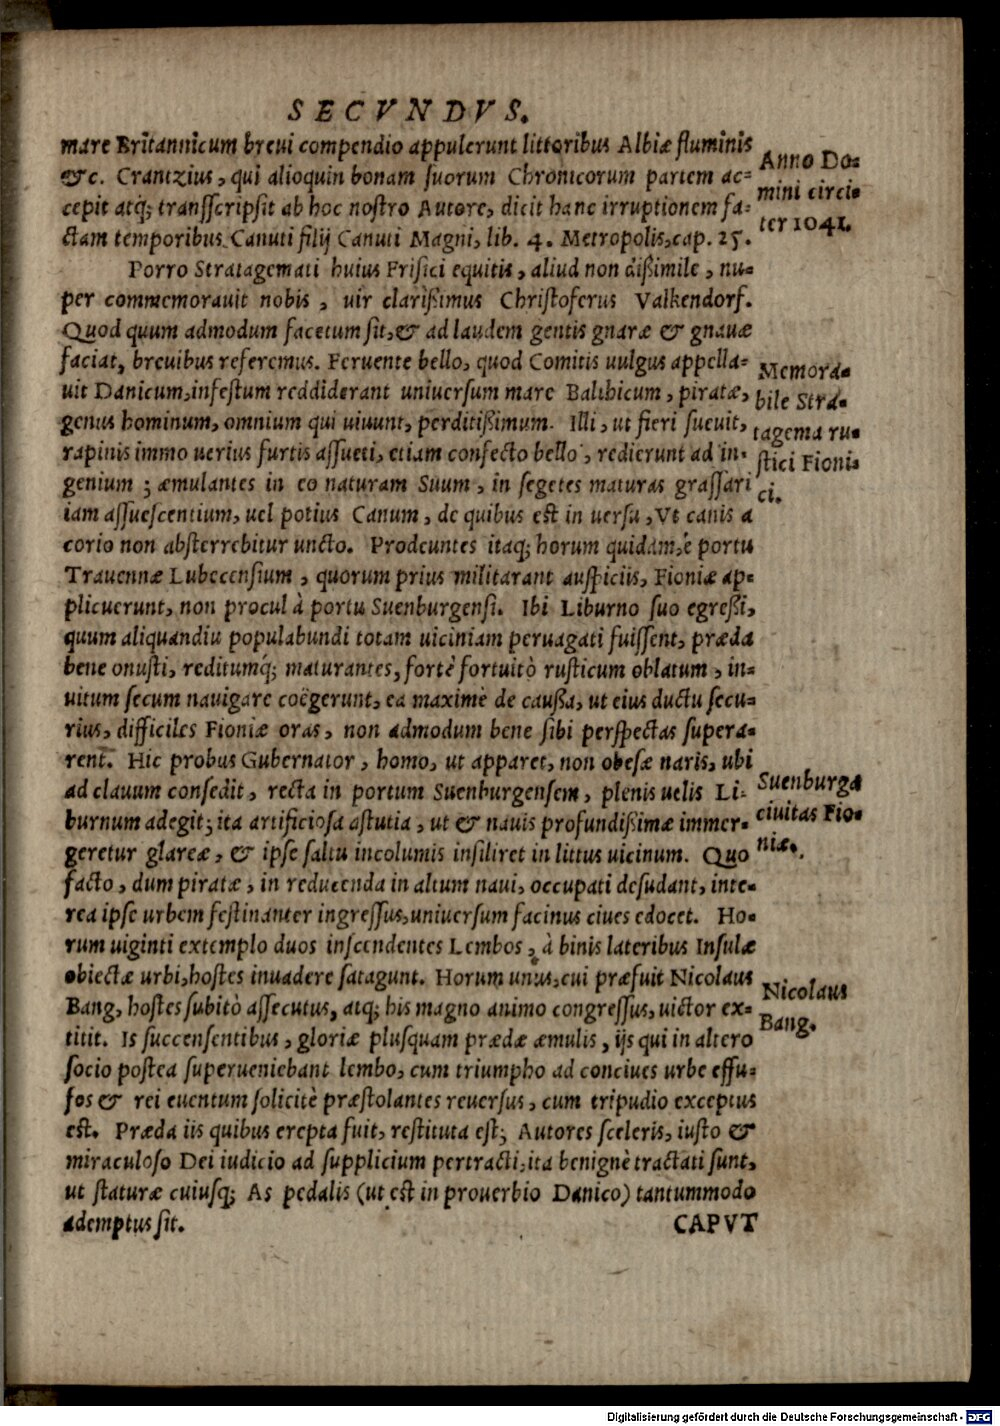 SECVNDVS.
mare Britannicum breui compendio appulerunt littoribus Albiæ fluminis
&c. Crantzius, qui alioquin bonam suorum Chronicorum partem ac=
cepit atq; transscripsit ab hoc nostro Autore, dicit hanc irruptionem fa=
ctam temporibus Canuti filij Canuti Magni, lib. 4. Metropolis, cap. 25.
Anno Do=
mini circi=
ter 1041.
Porro Stratagemati huius Frisici equitis, aliud non dißimile, nu=
per commemorauit nobis, uir clarißimus Christoferus Valkendorf.
Quod quum admodum facetum sit, & ad laudem gentis gnaræ & gnauæ
faciat, breuibus referemus. Feruente bello, quod Comitis uulgus appella=
uit Danicum, infestum reddiderant uniuersum mare Balthicum, piratæ,
genus hominum, omnium qui uiuunt, perditißimum. Illi, ut fieri sueuit,
rapinis immo uerius furtis assueti, etiam confecto bello, redierunt ad in=
genium; æmulantes in eo naturam Suum, in segetes maturas grassari
iam assuescentium, uel potius Canum, de quibus est in uersu, Vt canis a
corio non absterrebitur uncto. Prodeuntes itaq; horum quidam, è portu
Trauennæ Lubecensium, quorum prius militarant auspiciis, Fioniæ ap=
plicuerunt, non procul à portu Suenburgensi. Ibi Liburno suo egreßi,
quum aliquandiu populabundi totam uiciniam peruagati fuissent, præda
bene onusti, reditumq́; maturantes, fortè fortuitò rusticum oblatum, in=
uitum secum nauigare coëgerunt, ea maximè de caußa, ut eius ductu secu=
rius, difficiles Fioniæ oras, non admodum bene sibi perspectas supera=
rent. Hic probus Gubernator, homo, ut apparet, non obesæ naris, ubi
ad clauum consedit, recta in portum Suenburgensem, plenis uelis Li=
burnum adegit; ita artificiosa astutia, ut & nauis profundißimæ immer=
geretur glareæ, & ipse saltu incolumis insiliret in littus uicinum. Quo
facto, dum piratæ, in reducenda in altum naui, occupati desudant, inte=
rea ipse urbem festinanter ingressus, uniuersum facinus ciues edocet. Ho=
rum uiginti extemplo duos inscendentes Lembos, à binis lateribus Insulæ
obiectæ urbi, hostes inuadere satagunt. Horum unus, cui præfuit Nicolaus
Bang, hostes subitò assecutus, atq; his magno animo congressus, uictor ex=
titit. Is succensentibus, gloriæ plusquam prædæ æmulis, ijs qui in altero
socio postea superueniebant lembo, cum triumpho ad conciues urbe effu=
sos & rei euentum solicitè præstolantes reuersus, cum tripudio exceptus
est. Præda iis quibus erepta fuit, restituta est; Autores sceleris, iusto &
miraculoso Dei iudicio ad supplicium pertracti, ita benignè tractati sunt,
ut staturæ cuiusq; As pedalis (ut est in prouerbio Danico) tantummodo
ademptus sit.
CAPVT
Memora=
bile Stra=
tagema ru=
stici Fioni=
ci.
Suenburga
ciuitas Fio=
niæ.
Nicolaus
Bang.
Digitalisierung gefördert durch die Deutsche Forschungsgemeinschaft - DFG